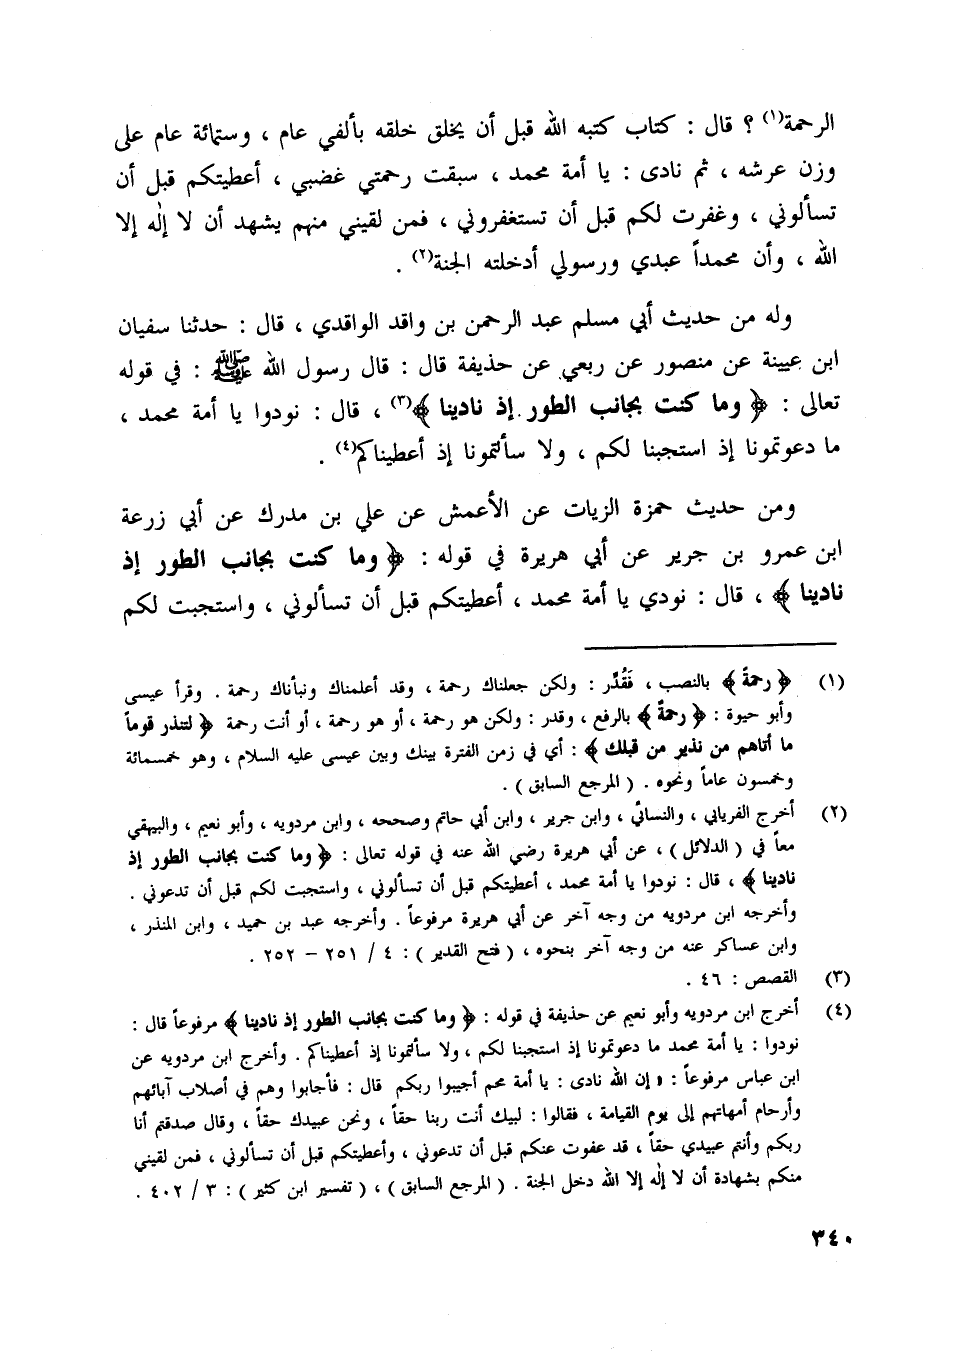 الرحمة(١) ؟ قال : كتاب كتبه الله قبل أن يخلق خلقه بألفي عام ، وستمائة عام على
وزن عرشه ، ثم نادى : يا أمة محمد ، سبقت رحمتي غضبي ، أعطيتكم قبل أن
تسألوني ، وغفرت لكم قبل أن تستغفروني ، فمن لقيني منهم يشهد أن لا إلٰه إلا
الله ، وأن محمداً عبدي ورسولي أدخلته الجنة(٢) .
وله من حديث أبي مسلم عبد الرحمن بن واقد الواقدي ، قال : حدثنا سفيان
ابن عيينة عن منصور عن ربعي عن حذيفة قال : قال رسول الله ﷺ : في قوله
تعالى : ﴿ وما كنت بجانب الطور إذ نادينا ﴾(٣) ، قال : نودوا يا أمة محمد ،
ما دعوتمونا إذ استجبنا لكم ، ولا سألتمونا إذ أعطيناكم(٤) .
ومن حديث حمزة الزيات عن الأعمش عن علي بن مدرك عن أبي زرعة
ابن عمرو بن جرير عن أبي هريرة في قوله : ﴿ وما كنت بجانب الطور إذ
نادينا ﴾ ، قال : نودي يا أمة محمد ، أعطيتكم قبل أن تسألوني ، واستجبت لكم
(١) ﴿ رحمةً ﴾ بالنصب ، فَقُدِّر : ولكن جعلناك رحمة ، وقد أعلمناك ونبأناك رحمة . وقرأ عيسى
وأبو حيوة : ﴿ رحمةٌ ﴾ بالرفع ، وقدر : ولكن هو رحمة ، أو هو رحمة ، أو أنت رحمة ﴿ لتنذر قوماً
ما أتاهم من نذير من قبلك ﴾ : أي في زمن الفترة بينك وبين عيسى عليه السلام ، وهو خمسمائة
وخمسون عاماً ونحوه . ( المرجع السابق ) .
(٢) أخرج الفريابي ، والنسائي ، وابن جرير ، وابن أبي حاتم وصححه ، وابن مردويه ، وأبو نعيم ، والبيهقي
معاً في ( الدلائل ) ، عن أبي هريرة رضي الله عنه في قوله تعالى : ﴿ وما كنت بجانب الطور إذ
نادينا ﴾ ، قال : نودوا يا أمة محمد ، أعطيتكم قبل أن تسألوني ، واستجبت لكم قبل أن تدعوني .
وأخرجه ابن مردويه من وجه آخر عن أبي هريرة مرفوعاً . وأخرجه عبد بن حميد ، وابن المنذر ،
وابن عساكر عنه من وجه آخر بنحوه ، ( فتح القدير ) : ٤ / ٢٥١ – ٢٥٢ .
(٣) القصص : ٤٦ .
(٤) أخرج ابن مردويه وأبو نعيم عن حذيفة في قوله : ﴿ وما كنت بجانب الطور إذ نادينا ﴾ مرفوعاً قال :
نودوا : يا أمة محمد ما دعوتمونا إذ استجبنا لكم ، ولا سألتمونا إذ أعطيناكم . وأخرج ابن مردويه عن
ابن عباس مرفوعاً : « إن الله نادى : يا أمة محم أجيبوا ربكم قال : فأجابوا وهم في أصلاب آبائهم
وأرحام أمهاتهم إلى يوم القيامة ، فقالوا : لبيك أنت ربنا حقاً ، ونحن عبيدك حقاً ، وقال صدقتم أنا
ربكم وأنتم عبيدي حقاً ، قد عفوت عنكم قبل أن تدعوني ، وأعطيتكم قبل أن تسألوني ، فمن لقيني
منكم بشهادة أن لا إلٰه إلا الله دخل الجنة . ( المرجع السابق ) ، ( تفسير ابن كثير ) : ٣ / ٤٠٢ .
٣٤٠